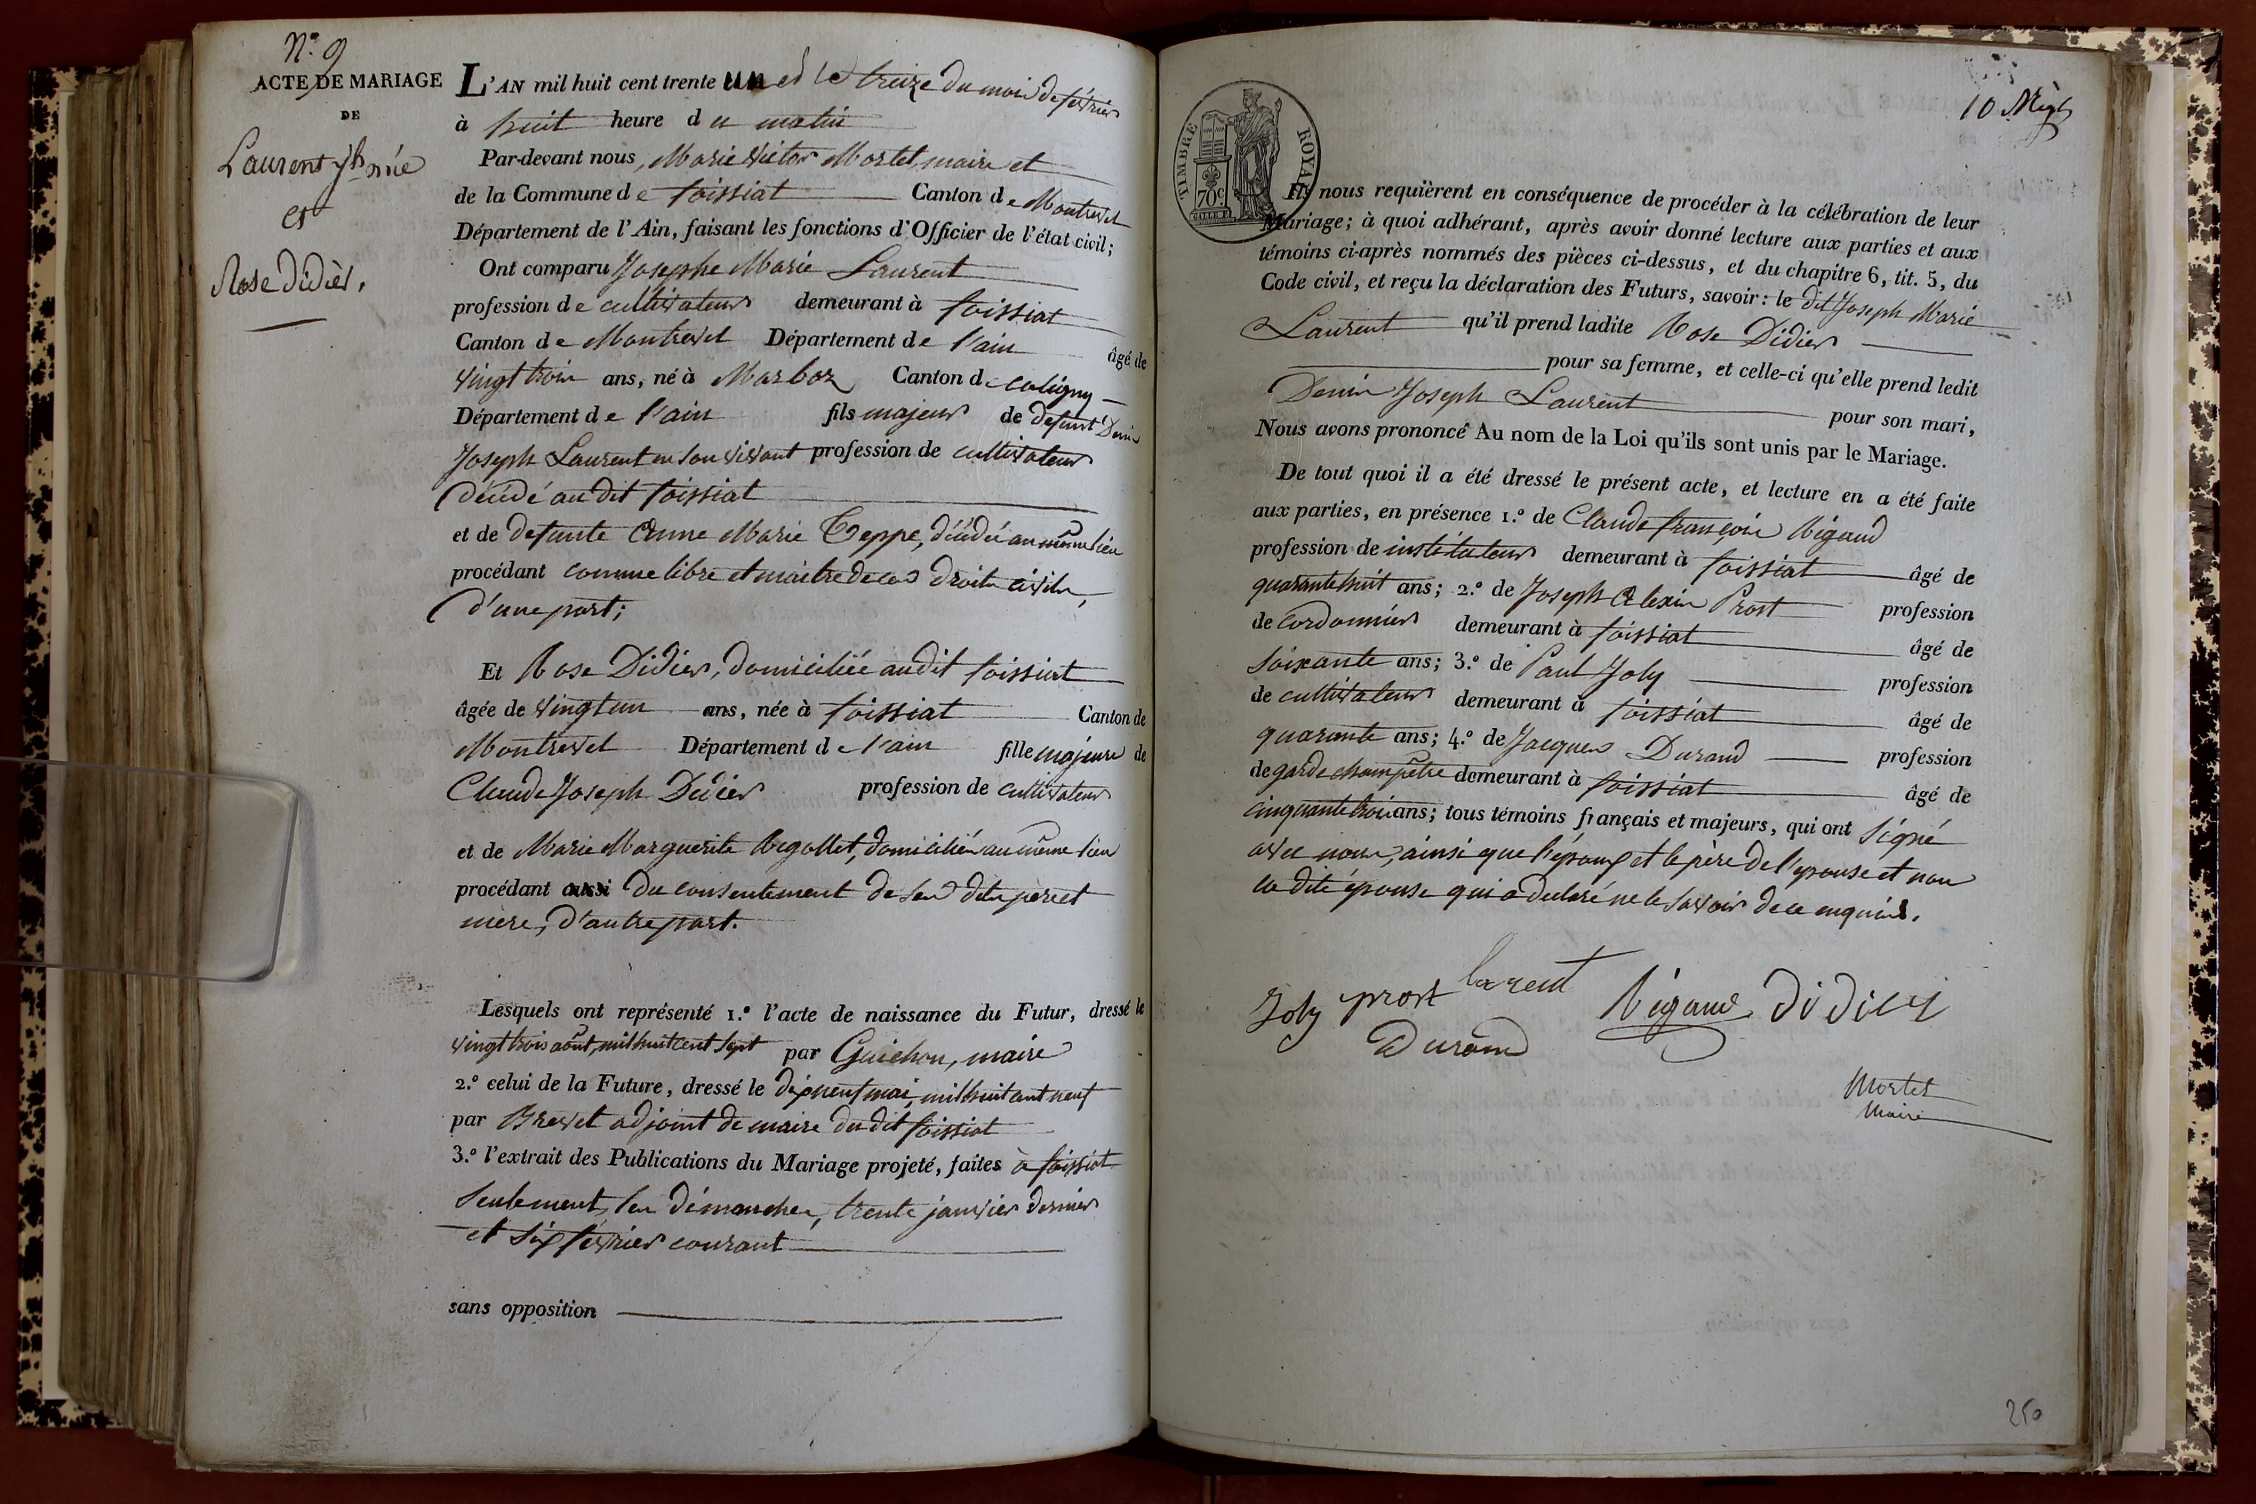 N.° 9
ACTE DE MARIAGE
DE
Laurent jh mie
et
Rose Didier,
L'AN mil huit cent trente un et le treize du mois de février
à huit heure du matin
Par-devant nous, Marie Victor Mortet, maire et
de la Commune de foissiat Canton de Montrevel
Département de l'Ain, faisant les fonctions d'Officier de l'état civil;
Ont comparu Josephe Marie Laurent
profession de cultivateur demeurant à foissiat
Canton de Montrevel Département de l'ain âgé de
vingt trois ans, né à Marboz Canton de coligny
Département de l'ain fils majeur de defunt Denis
Joseph Laurent en son vivant profession de cultivateur
décédé au dit foissiat
et de defunte Anne Marie Teppe, décédée au même lieu
procédant comme libre et maitre de ses droits civils,
d'une part;
Et Rose Didier, domiciliée audit foissiat
âgée de vingt un ans, née à foissiat Canton de
Montrevel Département de l'ain fille majeure de
Claude Joseph Didier profession de cultivateur
et de Marie Marguerite Rigollet, domiciliés au même lieu
procédant aussi du consentement de ses dits père et
mere, d'autre part.
Lesquels ont représenté 1.° l'acte de naissance du Futur, dressé le
vingt trois août, mil huit cent sept par Guichon, maire
2.° celui de la Future, dressé le dix neuf mai, mil huit cent neuf
par Brevet adjoint de maire du dit foissiat
3.° l'extrait des Publications du Mariage projeté, faites à foissiat
seulement, les dimanches, trente janvier dernier
et six février courant
sans opposition
10 Mgs
TIMBRE ROYAL
70 c.
Ils nous requièrent en conséquence de procéder à la célébration de leur
Mariage; à quoi adhérant, après avoir donné lecture aux parties et aux
témoins ci-après nommés des pièces ci-dessus, et du chapitre 6, tit. 5, du
Code civil, et reçu la déclaration des Futurs, savoir: le dit Joseph Marie
Laurent qu'il prend ladite Rose Didier
pour sa femme, et celle-ci qu'elle prend ledit
Denis Joseph Laurent pour son mari,
Nous avons prononcé Au nom de la Loi qu'ils sont unis par le Mariage.
De tout quoi il a été dressé le présent acte, et lecture en a été faite
aux parties, en présence 1.° de Claude françois Rigaud
profession de instituteur demeurant à foissiat âgé de
quarante huit ans; 2.° de Joseph Alexis Prost profession
de cordonnier demeurant à foissiat âgé de
soixante ans; 3.° de Paul Joly profession
de cultivateur demeurant à foissiat âgé de
quarante ans; 4.° de Jacques Durand profession
de garde champêtre demeurant à foissiat âgé de
cinquante trois ans; tous témoins français et majeurs, qui ont signé
avec nous, ainsi que l'époux et le père de l'epouse et non
la dite épouse qui a declaré ne le savoir de ce enquise.
Joly prost laurent Rigaud Didier
Durand
Mortet
Maire
250